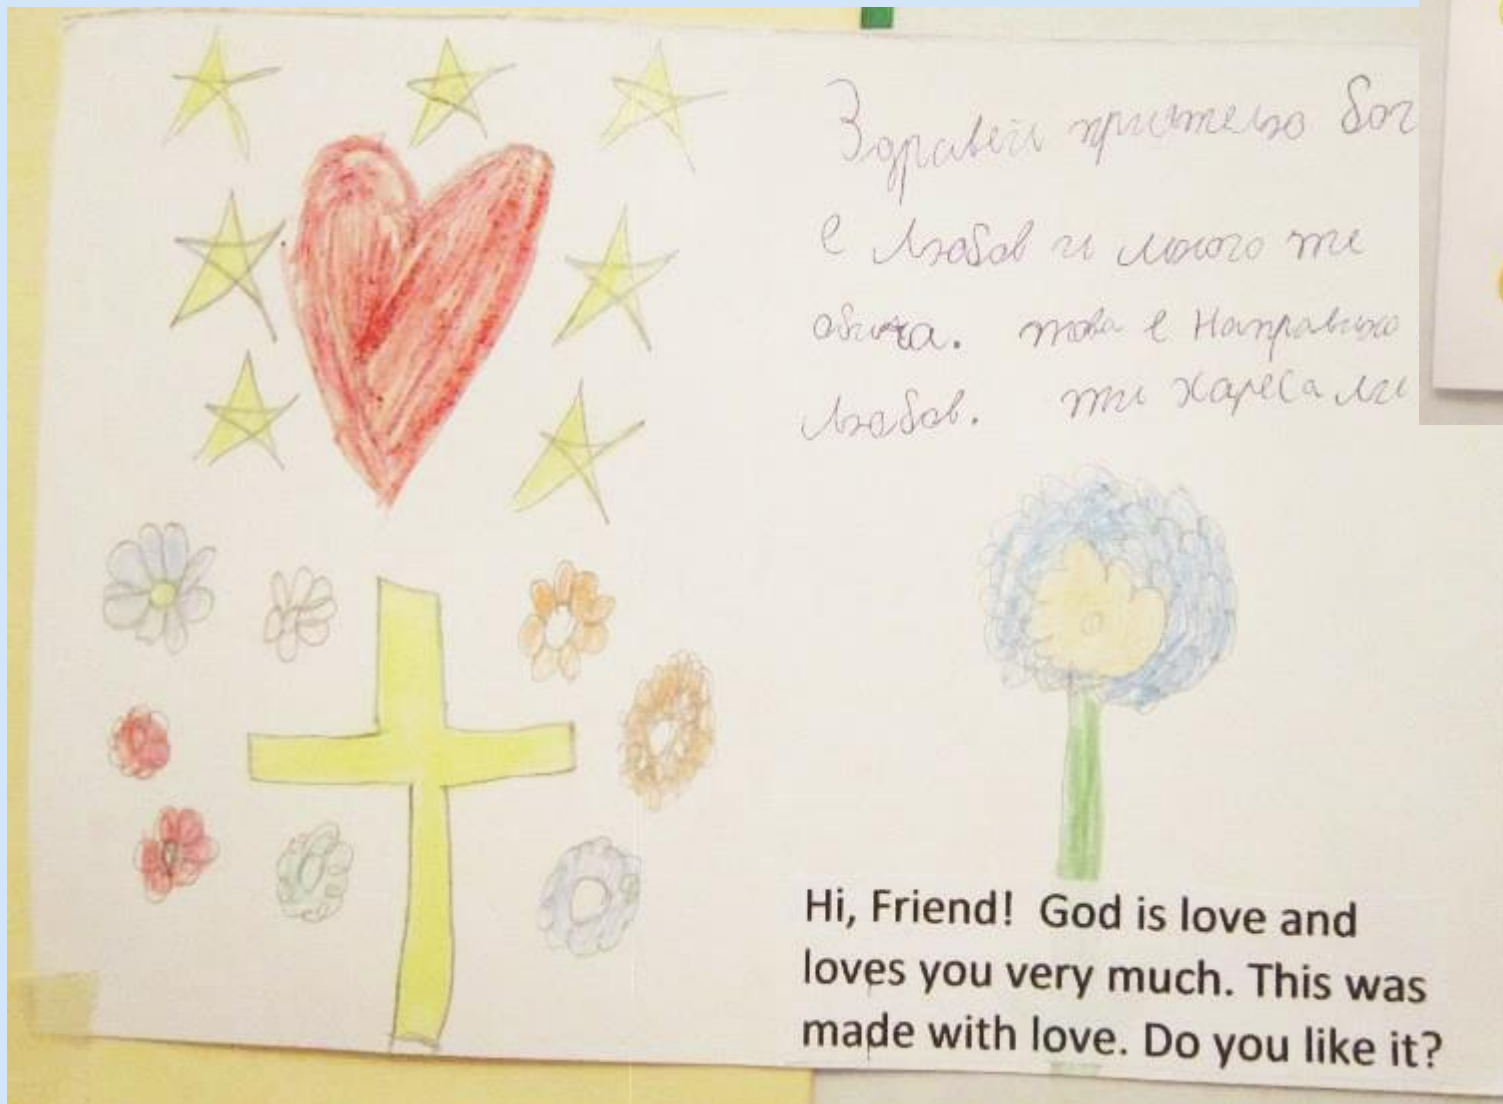 Здравей приятелю бог
е любов и много те
обича. това е направено
любов. ти хареса ли
Hi, Friend! God is love and
loves you very much. This was
made with love. Do you like it?